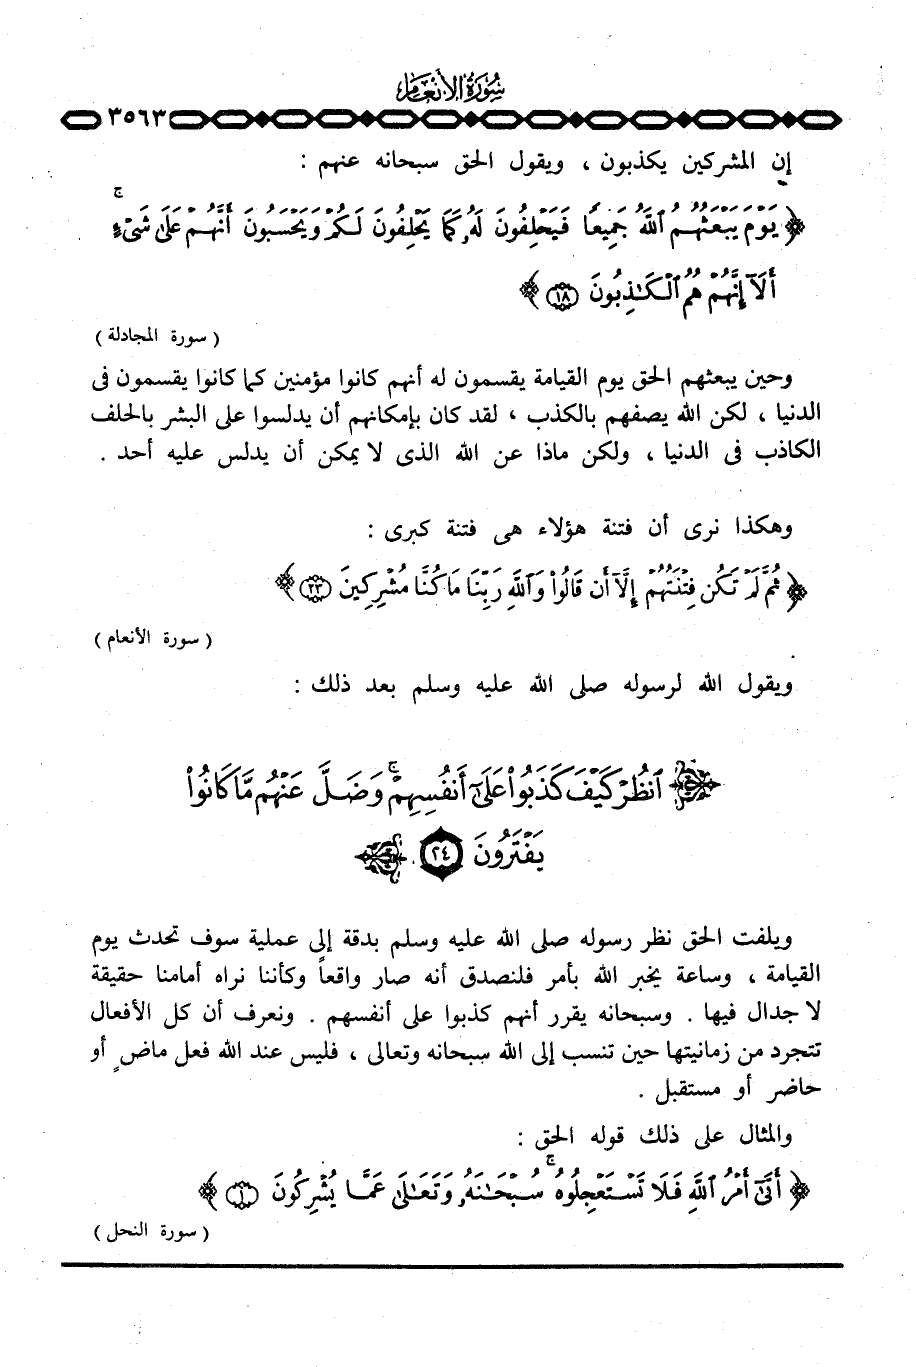 سُورَةُ الأَنْعَامِ
٣٥٦٣
إن المشركين يكذبون ، ويقول الحق سبحانه عنهم :
﴿ يَوْمَ يَبْعَثُهُمُ ٱللَّهُ جَمِيعًا فَيَحْلِفُونَ لَهُۥ كَمَا يَحْلِفُونَ لَكُمْ وَيَحْسَبُونَ أَنَّهُمْ عَلَىٰ شَىْءٍۚ
أَلَآ إِنَّهُمْ هُمُ ٱلْكَـٰذِبُونَ ۝١٨ ﴾
( سورة المجادلة )
وحين يبعثهم الحق يوم القيامة يقسمون له أنهم كانوا مؤمنين كما كانوا يقسمون فى
الدنيا ، لكن الله يصفهم بالكذب ، لقد كان بإمكانهم أن يدلسوا على البشر بالحلف
الكاذب فى الدنيا ، ولكن ماذا عن الله الذى لا يمكن أن يدلس عليه أحد .
وهكذا نرى أن فتنة هؤلاء هى فتنة كبرى :
﴿ ثُمَّ لَمْ تَكُن فِتْنَتُهُمْ إِلَّآ أَن قَالُوا۟ وَٱللَّهِ رَبِّنَا مَا كُنَّا مُشْرِكِينَ ۝٢٣ ﴾
( سورة الأنعام )
ويقول الله لرسوله صلى الله عليه وسلم بعد ذلك :
﴿ ٱنظُرْ كَيْفَ كَذَبُوا۟ عَلَىٰٓ أَنفُسِهِمْۚ وَضَلَّ عَنْهُم مَّا كَانُوا۟
يَفْتَرُونَ ۝٢٤ ﴾
ويلفت الحق نظر رسوله صلى الله عليه وسلم بدقة إلى عملية سوف تحدث يوم
القيامة ، وساعة يخبر الله بأمر فلنصدق أنه صار واقعاً وكأننا نراه أمامنا حقيقة
لا جدال فيها . وسبحانه يقرر أنهم كذبوا على أنفسهم . ونعرف أن كل الأفعال
تتجرد من زمانيتها حين تنسب إلى الله سبحانه وتعالى ، فليس عند الله فعل ماضٍ أو
حاضر أو مستقبل .
والمثال على ذلك قوله الحق :
﴿ أَتَىٰٓ أَمْرُ ٱللَّهِ فَلَا تَسْتَعْجِلُوهُۚ سُبْحَـٰنَهُۥ وَتَعَـٰلَىٰ عَمَّا يُشْرِكُونَ ۝١ ﴾
( سورة النحل )